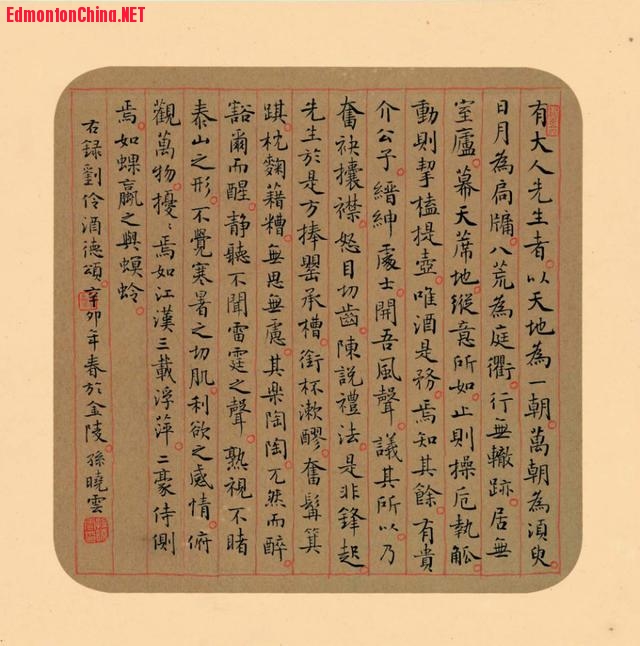 EdmontonChina.NET
有大人先生者。以天地為一朝。萬朝為須臾。
日月為扃牖。八荒為庭衢。行無轍跡。居無
室廬。幕天席地。縱意所如。止則操卮執觚。
動則挈榼提壺。唯酒是務。焉知其餘。有貴
介公子。縉紳處士。聞吾風聲。議其所以。乃
奮袂攘襟。怒目切齒。陳說禮法。是非鋒起。
先生於是方捧罌承槽。銜杯漱醪。奮髯箕
踑。枕麴藉糟。無思無慮。其樂陶陶。兀然而醉。
豁爾而醒。靜聽不聞雷霆之聲。熟視不睹
泰山之形。不覺寒暑之切肌。利欲之感情。俯
觀萬物。擾〻焉如江漢三載浮萍。二豪侍側
焉。如蜾蠃之與螟蛉。
右錄劉伶酒德頌。辛卯年春於金陵。孫曉雲